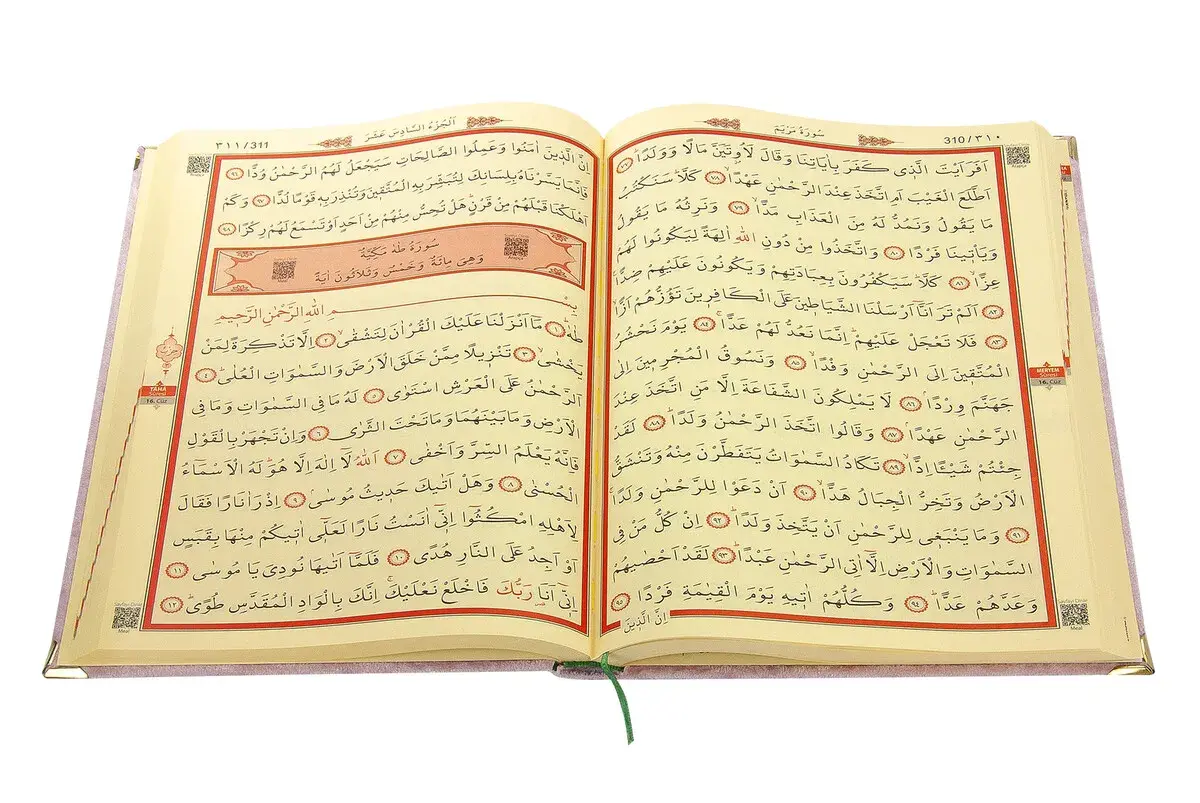 310/٣١٠
سُورَةُ مَرْيَمَ
اَفَرَاَيْتَ الَّذ۪ي كَفَرَ بِاٰيَاتِنَا وَقَالَ لَاُو۫تَيَنَّ مَالًا وَوَلَدًاۜ ﴿٧٧﴾
اَطَّلَعَ الْغَيْبَ اَمِ اتَّخَذَ عِنْدَ الرَّحْمٰنِ عَهْدًاۙ ﴿٧٨﴾ كَلَّاۜ سَنَكْتُبُ
مَا يَقُولُ وَنَمُدُّ لَهُ مِنَ الْعَذَابِ مَدًّاۙ ﴿٧٩﴾ وَنَرِثُهُ مَا يَقُولُ
وَيَأْت۪ينَا فَرْدًا ﴿٨٠﴾ وَاتَّخَذُوا مِنْ دُونِ اللّٰهِ اٰلِهَةً لِيَكُونُوا لَهُمْ
عِزًّاۙ ﴿٨١﴾ كَلَّاۜ سَيَكْفُرُونَ بِعِبَادَتِهِمْ وَيَكُونُونَ عَلَيْهِمْ ضِدًّا۟
﴿٨٢﴾ اَلَمْ تَرَ اَنَّٓا اَرْسَلْنَا الشَّيَاط۪ينَ عَلَى الْكَافِر۪ينَ تَؤُزُّهُمْ اَزًّاۙ
﴿٨٣﴾ فَلَا تَعْجَلْ عَلَيْهِمْۜ اِنَّمَا نَعُدُّ لَهُمْ عَدًّاۚ ﴿٨٤﴾ يَوْمَ نَحْشُرُ
الْمُتَّق۪ينَ اِلَى الرَّحْمٰنِ وَفْدًاۙ ﴿٨٥﴾ وَنَسُوقُ الْمُجْرِم۪ينَ اِلٰى
جَهَنَّمَ وِرْدًاۢ ﴿٨٦﴾ لَا يَمْلِكُونَ الشَّفَاعَةَ اِلَّا مَنِ اتَّخَذَ عِنْدَ
الرَّحْمٰنِ عَهْدًاۢ ﴿٨٧﴾ وَقَالُوا اتَّخَذَ الرَّحْمٰنُ وَلَدًاۜ ﴿٨٨﴾ لَقَدْ
جِئْتُمْ شَيْـًٔا اِدًّاۙ ﴿٨٩﴾ تَكَادُ السَّمٰوَاتُ يَتَفَطَّرْنَ مِنْهُ وَتَنْشَقُّ
الْاَرْضُ وَتَخِرُّ الْجِبَالُ هَدًّاۙ ﴿٩٠﴾ اَنْ دَعَوْا لِلرَّحْمٰنِ وَلَدًاۚ
﴿٩١﴾ وَمَا يَنْبَغ۪ي لِلرَّحْمٰنِ اَنْ يَتَّخِذَ وَلَدًاۜ ﴿٩٢﴾ اِنْ كُلُّ مَنْ فِي
السَّمٰوَاتِ وَالْاَرْضِ اِلَّٓا اٰتِي الرَّحْمٰنِ عَبْدًاۜ ﴿٩٣﴾ لَقَدْ اَحْصٰيهُمْ
وَعَدَّهُمْ عَدًّاۜ ﴿٩٤﴾ وَكُلُّهُمْ اٰت۪يهِ يَوْمَ الْقِيٰمَةِ فَرْدًا ﴿٩٥﴾
اِنَّ الَّذ۪ينَ
MERYEM
Sûresi
16. Cüz
Meal
٣١١/311
اَلْجُزْءُ السَّادِسَ عَشَرَ
اِنَّ الَّذ۪ينَ اٰمَنُوا وَعَمِلُوا الصَّالِحَاتِ سَيَجْعَلُ لَهُمُ الرَّحْمٰنُ وُدًّا ﴿٩٦﴾
فَاِنَّمَا يَسَّرْنَاهُ بِلِسَانِكَ لِتُبَشِّرَ بِهِ الْمُتَّق۪ينَ وَتُنْذِرَ بِه۪ قَوْمًا لُدًّا ﴿٩٧﴾ وَكَمْ
اَهْلَكْنَا قَبْلَهُمْ مِنْ قَرْنٍۜ هَلْ تُحِسُّ مِنْهُمْ مِنْ اَحَدٍ اَوْ تَسْمَعُ لَهُمْ رِكْزًا ﴿٩٨﴾
سُورَةُ طٰهٰ مَكِّيَّةٌ
وَهِيَ مِائَةٌ وَخَمْسٌ وَثَلَاثُونَ اٰيَةً
بِسْمِ اللّٰهِ الرَّحْمٰنِ الرَّح۪يمِ
طٰهٰۜ ﴿١﴾ مَٓا اَنْزَلْنَا عَلَيْكَ الْقُرْاٰنَ لِتَشْقٰىۙ ﴿٢﴾ اِلَّا تَذْكِرَةً لِمَنْ
يَخْشٰىۙ ﴿٣﴾ تَنْز۪يلًا مِمَّنْ خَلَقَ الْاَرْضَ وَالسَّمٰوَاتِ الْعُلٰىۜ ﴿٤﴾
اَلرَّحْمٰنُ عَلَى الْعَرْشِ اسْتَوٰى ﴿٥﴾ لَهُ مَا فِي السَّمٰوَاتِ وَمَا فِي
الْاَرْضِ وَمَا بَيْنَهُمَا وَمَا تَحْتَ الثَّرٰى ﴿٦﴾ وَاِنْ تَجْهَرْ بِالْقَوْلِ
فَاِنَّهُ يَعْلَمُ السِّرَّ وَاَخْفٰى ﴿٧﴾ اَللّٰهُ لَٓا اِلٰهَ اِلَّا هُوَۜ لَهُ الْاَسْمَٓاءُ
الْحُسْنٰى ﴿٨﴾ وَهَلْ اَتٰيكَ حَد۪يثُ مُوسٰىۢ ﴿٩﴾ اِذْ رَاٰ نَارًا فَقَالَ
لِاَهْلِهِ امْكُثُٓوا اِنّ۪ٓي اٰنَسْتُ نَارًا لَعَلّ۪ٓي اٰت۪يكُمْ مِنْهَا بِقَبَسٍ
اَوْ اَجِدُ عَلَى النَّارِ هُدًى ﴿١٠﴾ فَلَمَّٓا اَتٰيهَا نُودِيَ يَا مُوسٰى ﴿١١﴾
اِنّ۪ٓي اَنَا۬ رَبُّكَ فَاخْلَعْ نَعْلَيْكَۚ اِنَّكَ بِالْوَادِ الْمُقَدَّسِ طُوًىۜ ﴿١٢﴾
حزب
٢
TÂHÂ
Sûresi
16. Cüz
Meal